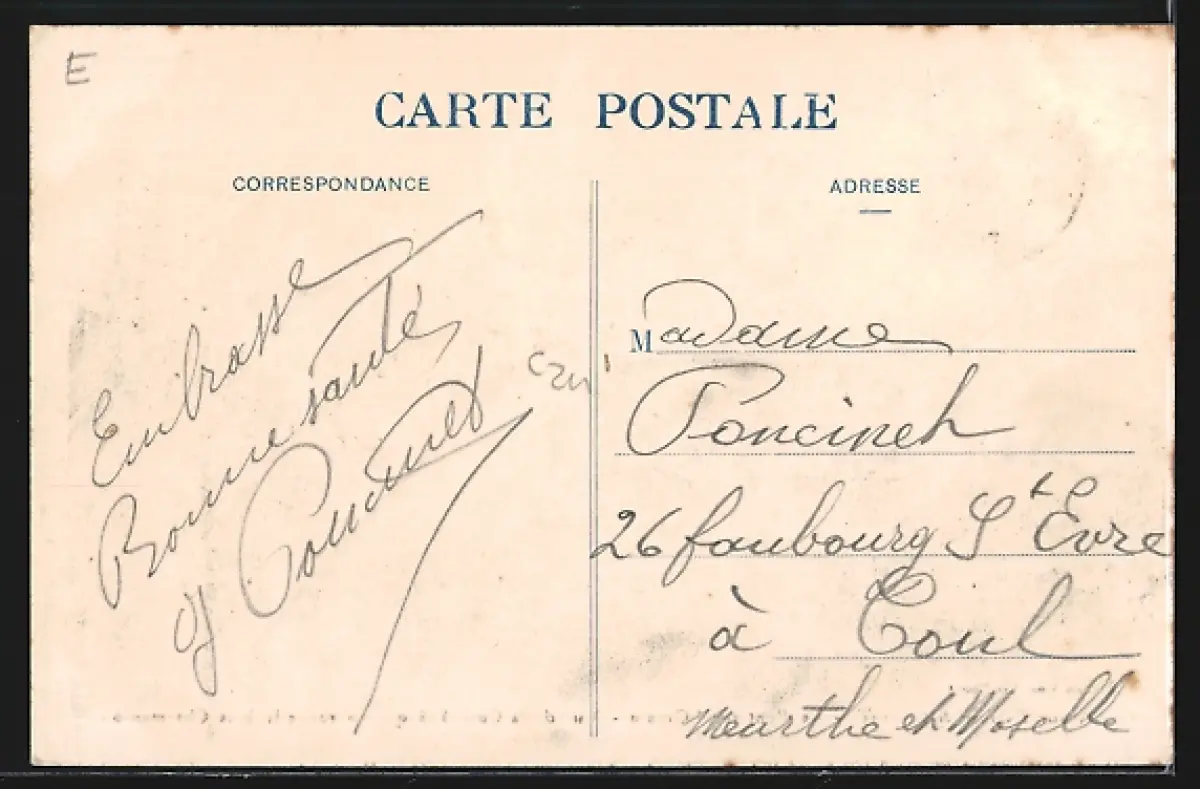 E
CARTE POSTALE
CORRESPONDANCE
ADRESSE
Embrasse
Bonne santé
Madame
26 faubourg St Evre
à Toul
Meurthe et Moselle